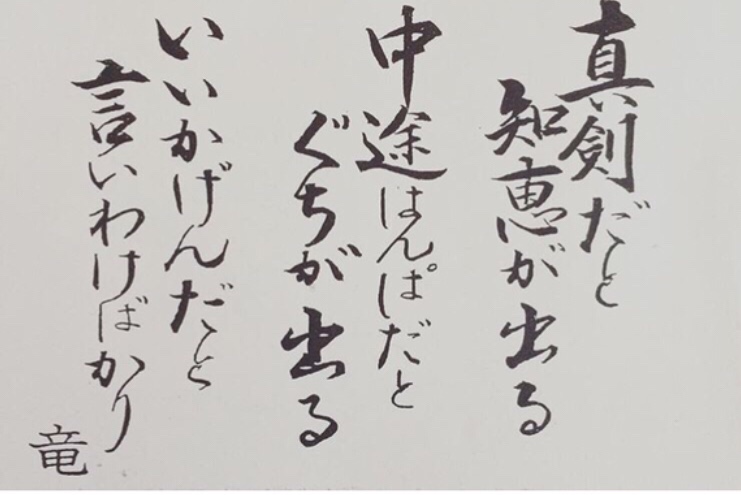 真剣だと
知恵が出る
中途はんぱだと
ぐちが出る
いいかげんだと
言いわけばかり
竜